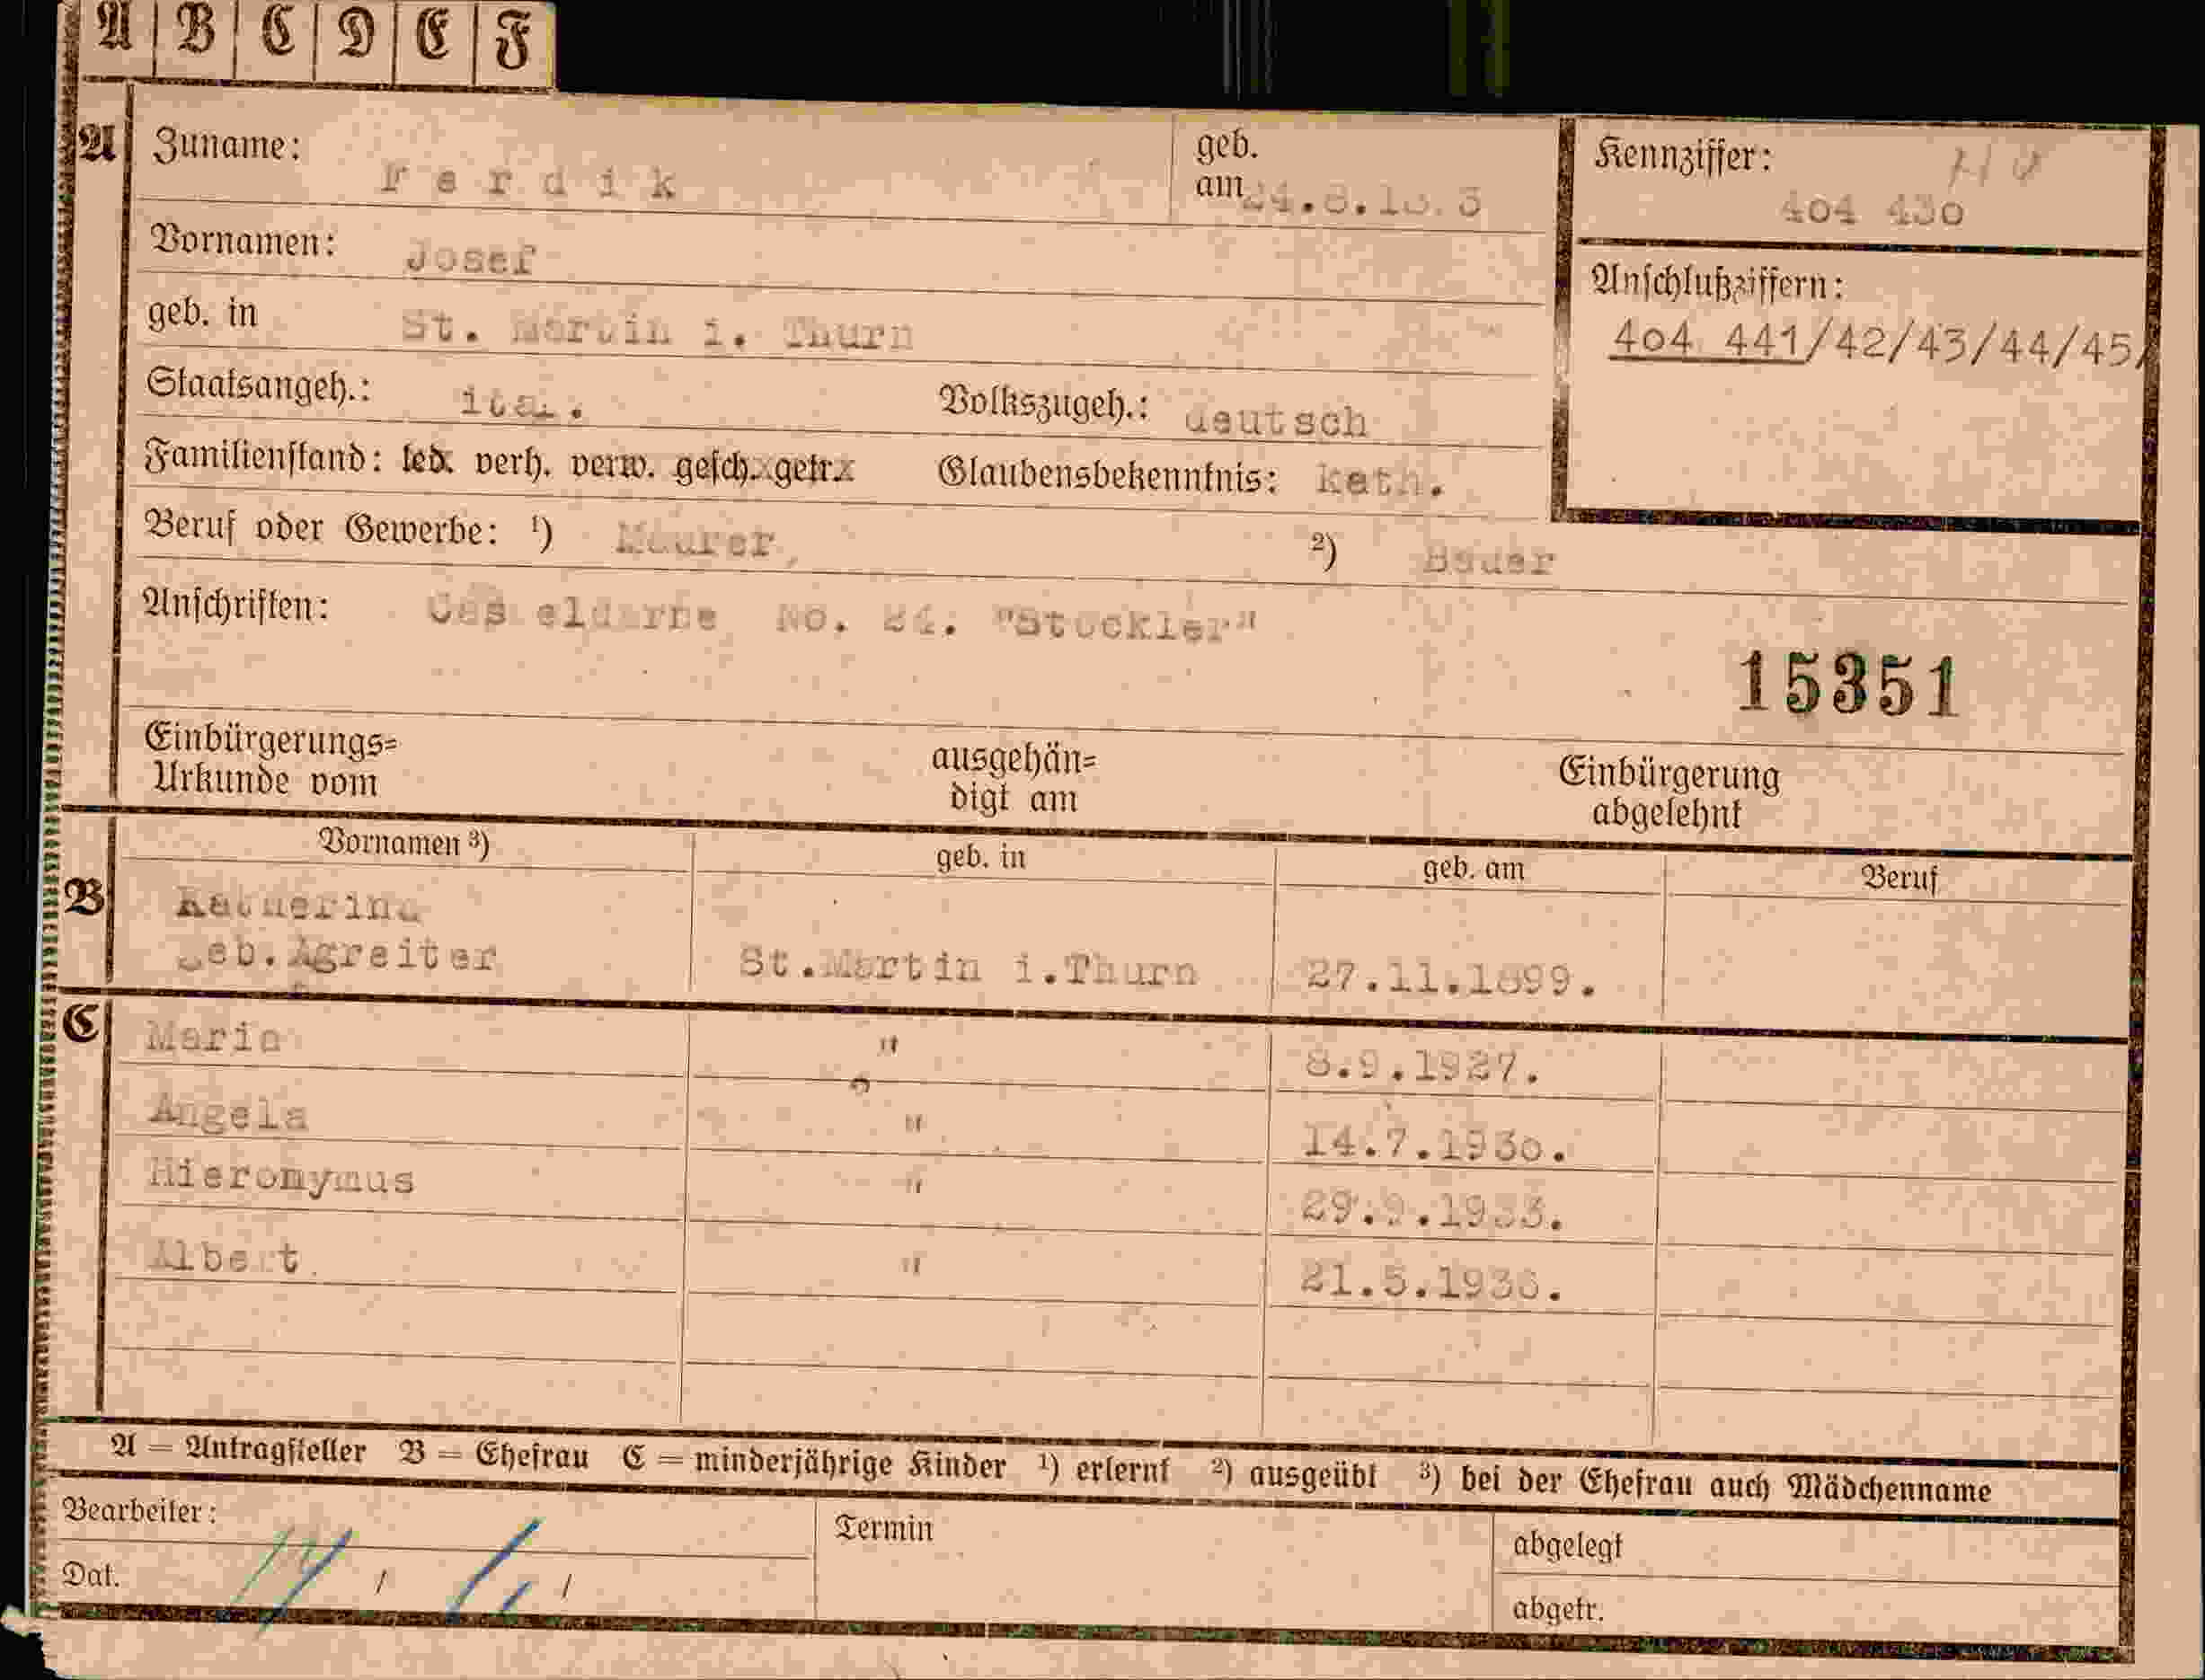 A B C D E F
A Zuname: geb.
am
Kennziffer:
Vornamen: Josef
Anschlußziffern:
404 441/42/43/44/45/
geb. in St. Martin i. Thurn
Staatsangeh.: ital. Volkszugeh.: deutsch
Familienstand: led. verh. verw. gesch. getr. Glaubensbekenntnis: kath.
Beruf oder Gewerbe: ¹) Maurer, ²) Bauer
Anschriften: No. "Stockler"
15351
Einbürgerungs=
Urkunde vom
ausgehän=
digt am
Einbürgerung
abgelehnt
Vornamen ³) geb. in geb. am Beruf
B Katherina
geb.Agreiter St.Martin i.Thurn 27.11.1899.
C Maria " 8.9.1927.
Angela " 14.7.1930.
Hieronymus " 29.9.1933.
Albert "
A = Antragsteller B = Ehefrau C = minderjährige Kinder ¹) erlernt ²) ausgeübt ³) bei der Ehefrau auch Mädchenname
Bearbeiter:
Dat. / /
Termin
abgelegt
abgetr.